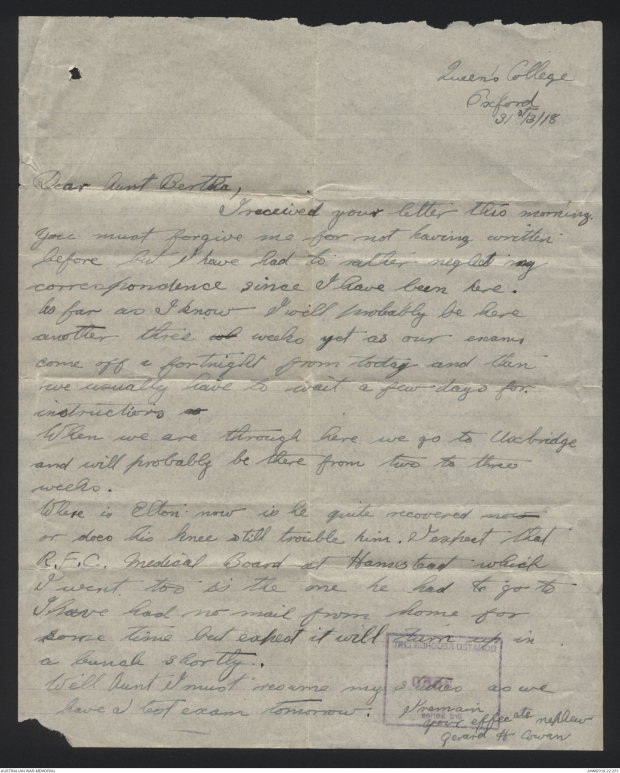 Queen's College
Oxford
31st/3/18
Dear Aunt Bertha,
I received your letter this morning.
You must forgive me for not having written
before but I have had to rather neglect my
correspondence since I have been here.
As far as I know I will probably be here
another three weeks yet as our exams
come off a fortnight from today and then
we usually have to wait a few days for
instructions
When we are through here we go to Uxbridge
and will probably be there from two to three
weeks.
Where is Elton now is he quite recovered now
or does his knee still trouble him. I expect that
R.F.C. Medical Board at Hampstead which
I went too is the one he had to go to
I have had no mail from home for
some time but expect it will turn up in
a bunch shortly.
Well Aunt I must resume my studies as we
have a test exam tomorrow. I remain
your affecate nephew
Gerard H Cowan
DONATED RECORDS LIST
AUSTRALIAN WAR MEMORIAL